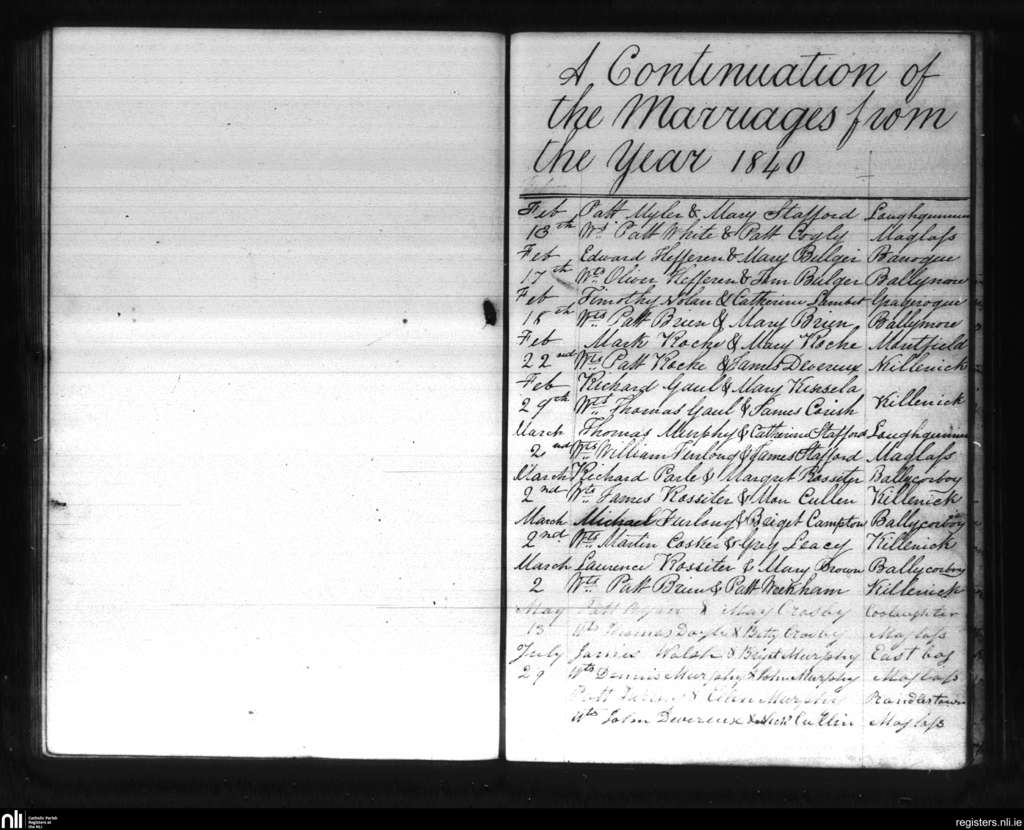 A Continuation of
the Marriages from
the Year 1840
Feb Patt Myler & Mary Stafford Loughgunnen
13th Wts Patt White & Patt Cogly Maglass
Feb Edward Hefferen & Mary Bulger Banogue
17th Wts Oliver Hefferen & Jam Bulger Ballymore
Feb Timothy Nolan & Catherine Lambert
18th Wts Patt Brien & Mary Brien Ballymore
Feb Mark Roche & Mary Roche Mountfield
22nd Wts Patt Roche & James Devereux Killenick
Feb Richard Gaul & Mary Kinsela
29th Wts Thomas Gaul & James Corish Killenick
March Thomas Murphy & Catherine Stafford Loughgunnen
2nd Wts William Furlong & James Stafford Maglass
March Richard Parle & Margret Rossiter Ballycorboy
2nd Wts James Rossiter & Cullen Killenick
March Michael Furlong & Briget Campton Ballycorboy
2nd Wts Martin Cosker & Leacy Killenick
March Laurence Rossiter & Mary Brown Ballycorboy
2 Wts Patt Brien & Patt Weekham Killenick
May Patt Ryan & Mary Crosby Coolaughter
13 Wts Thomas Doyle & Betty Crosby Maglass
July James Walsh & Briget Murphy East bog
29 Wts Dennis Murphy & John Murphy Maglass
Patt & Ellen Murphy Randlestown
Wts John Devereux & Cullin Maglass
nli Catholic Parish
Registers at
the NLI
registers.nli.ie